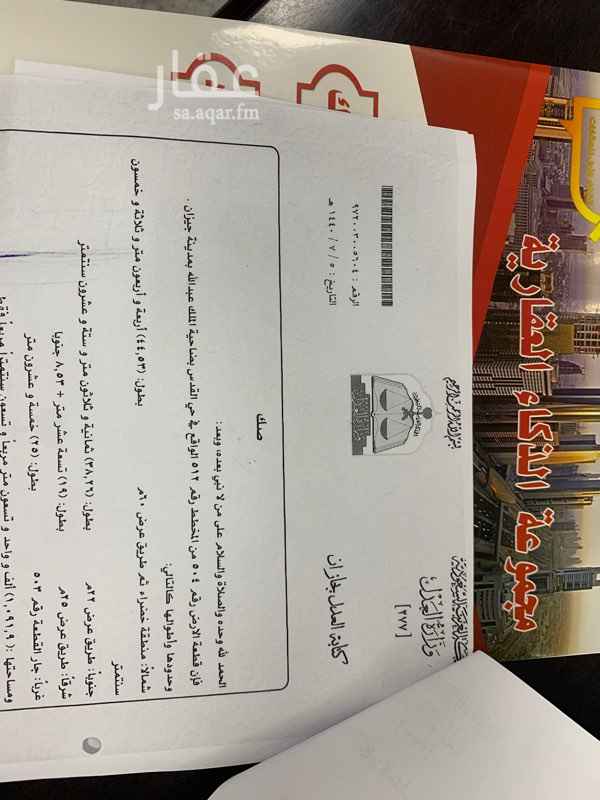 عقار
sa.aqar.fm
مجموعة الذكاء العقارية
بسم الله الرحمن الرحيم
وزارة العدل
[٢٧٧]
كتابة العدل بجازان
الرقم: ٩٧٢٠٠٣٠٠٥٦٠٤
التاريخ: ٥ / ٧ / ١٤٤٠ هـ
صك
الحمد لله وحده والصلاة والسلام على من لا نبي بعده، وبعد:
فإن قطعة الارض رقم ٥٠٤ من المخطط رقم ٥١٢ الواقع في حي القدس بضاحية الملك عبدالله بمدينة جيزان .
وحدودها وأطوالها كالتالي:
شمالا: منطقة خضراء ثم طريق عرض ٦٠م بطول: (٤٤,٥٣) أربعة و أربعون متر و ثلاثة و خمسون
سنتمتر
جنوباً: طريق عرض ٢٢م بطول: (٣٨,٢٦) ثمانية و ثلاثون متر و ستة و عشرون سنتمتر
شرقاً: طريق عرض ٢٥م بطول: (١٩) تسعة عشر متر + ٨,٥٣ جنوبا
غرباً: جار القطعة رقم ٥٠٣ بطول: (٢٥) خمسة و عشرون متر
ومساحتها :(١,٠٩١,٩) ألف و واحد و تسعون متر مربعاً و تسعون سنتمتراً مربعاً فقط